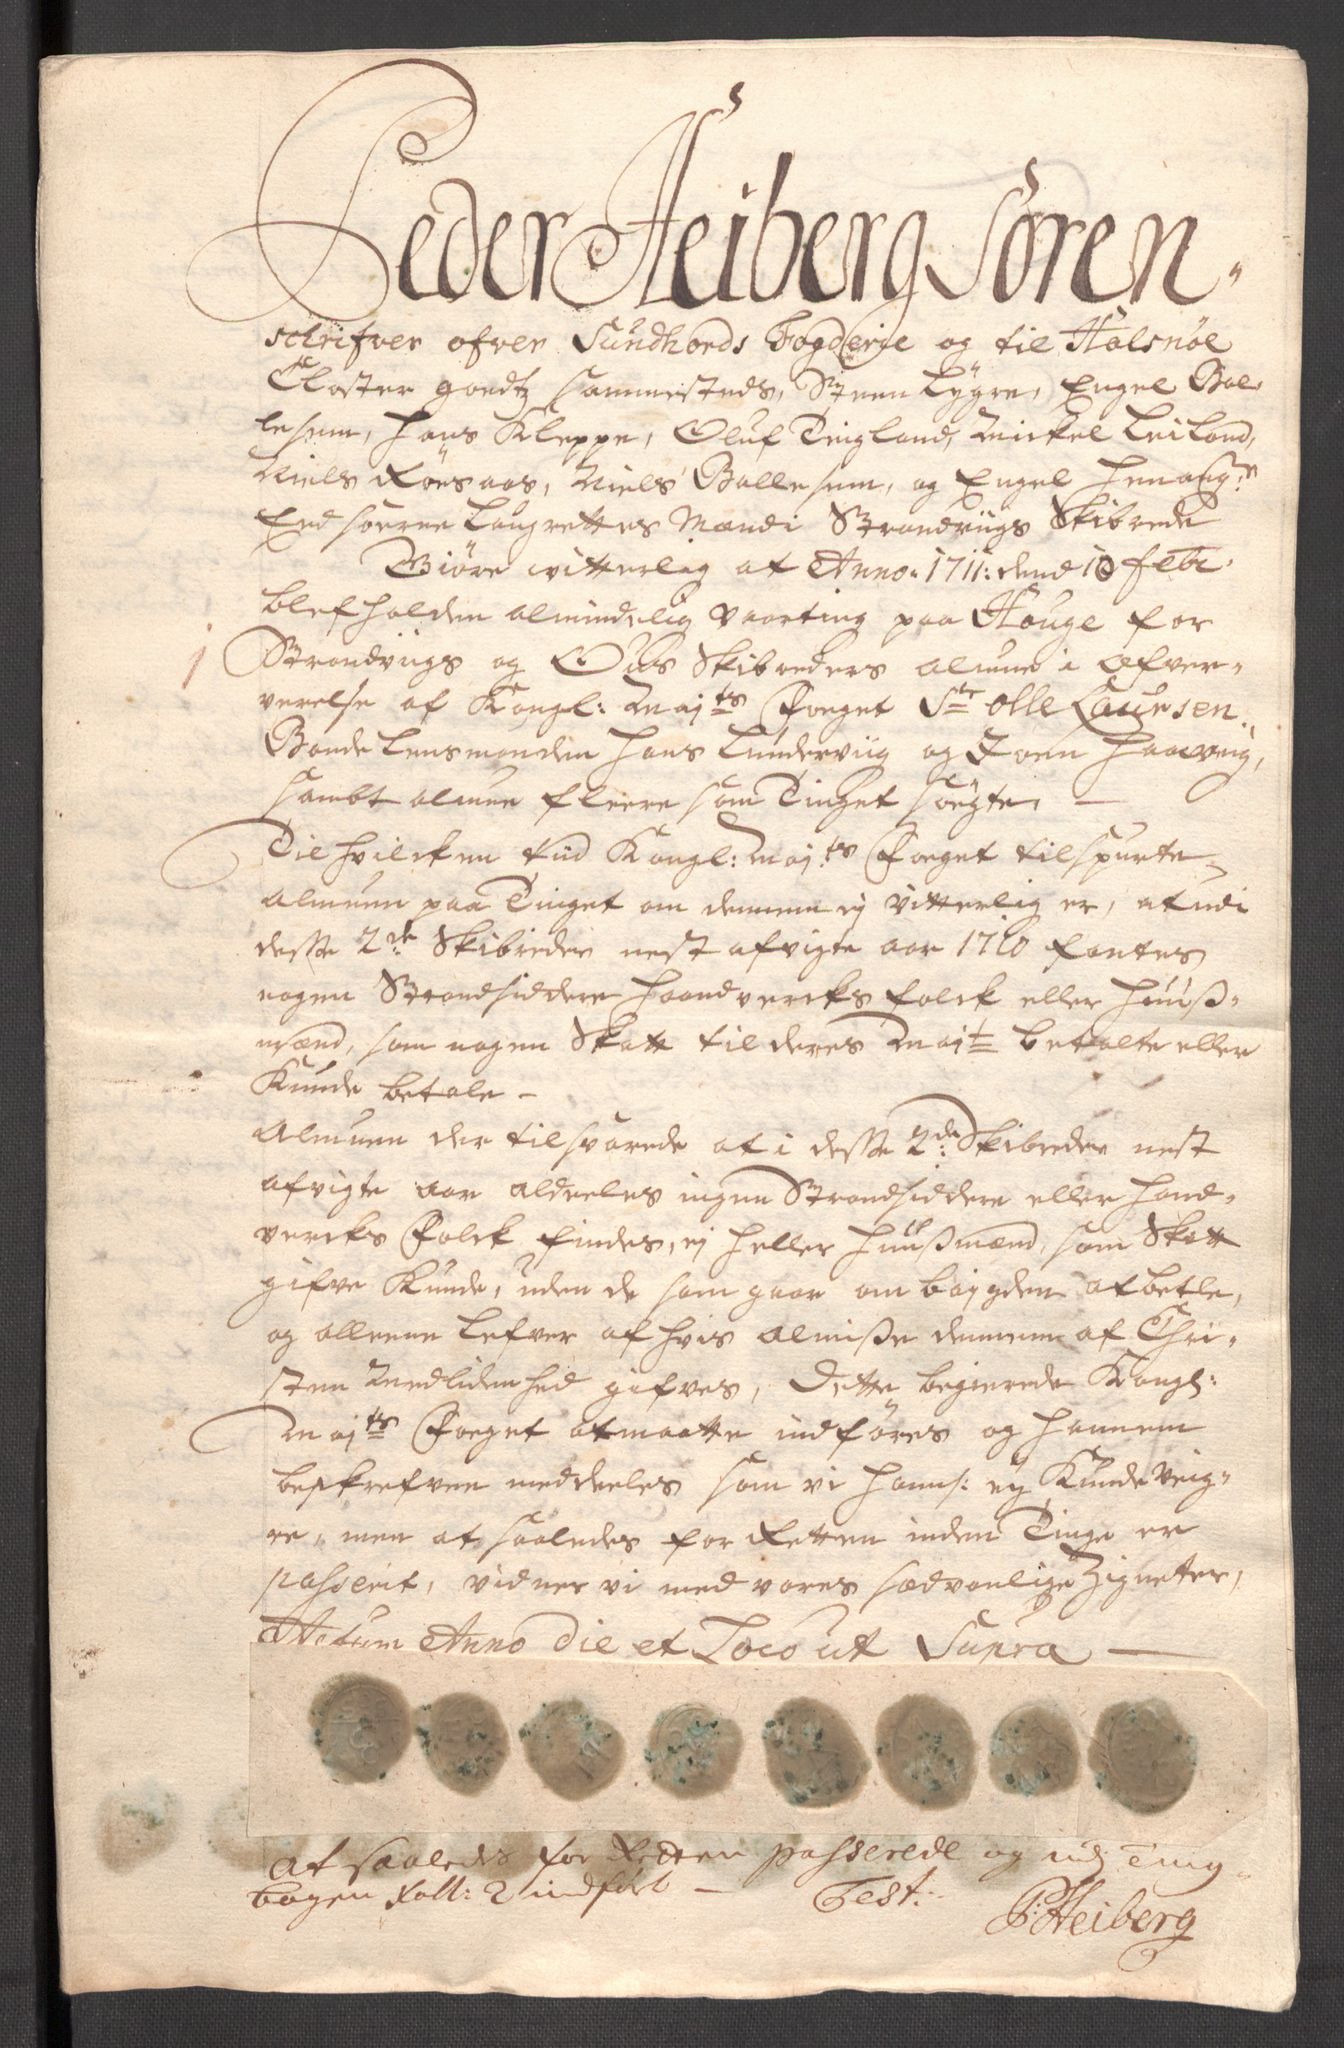 Peder Heiberg Soren-
schrifver ofver Sundhords Fogderie og til Halsnöe
Closter goedtz sammesteds, Steen Lygre, Engel Bal-
lesem, Hans Kleppe, Oluf Tingland, Mickel Leiland,
Niels Röesaas, Niels Ballesem, og Engel
Eedsoerne Laugrettes Mænd i Strandviigs Skibrede
Giöre witterlig at Anno: 1711: dend 10 Febr:
blef holden almindelig Vaarting paa Houge for
Strandviigs og Ous Skibreders almue i ofver-
verelse af Kongl: Maj:ts Foeget Sr: Olle Laursen
Bonde Lensmanden Hans Lundervüg og Joen Haavig,
sambt almue fleere som Tinget söegte, —
Til hvilcken tiid Kongl: Maj:ts Foeget tilspurte
Almuen paa Tinget om dennem ej vitterlig er, at udi
desse 2de: Skibreder nest afvigte aar 1710 fantes
nogen Strandsiddere Haandvercks folck eller Huuß-
mænd, som nogen Skatt til deres Maj:t betalte eller
Kunde betale –
Almuen der til svarede at i desse 2de: Skibreder nest
afvigte aar aldeeles ingen Strandsiddere eller Hand-
vercks Folck findes, ej heller Huußmænd, som Skatt
gifve Kunde, uden de som gaar om bojgden at betle,
og alleene Lefver af hvis Almisse dennem af Chri-
sten Medlidenhed gifves, Dette begierede Kongl:
Maj:ts Foeget at maatte indföres og hannem
beskrefven meddeeles som vi ham: ej Kunde Veig-
re, men at saaledes for Retten inden Tinge er
passerit, vidner vi med vores sædvanlige Zigneter,
Actum Anno Die et Loco ut Supra —
At saaledes for Retten passerede og udj Ting-
bogen Foll: 2 indfört — Test:
P: Heiberg